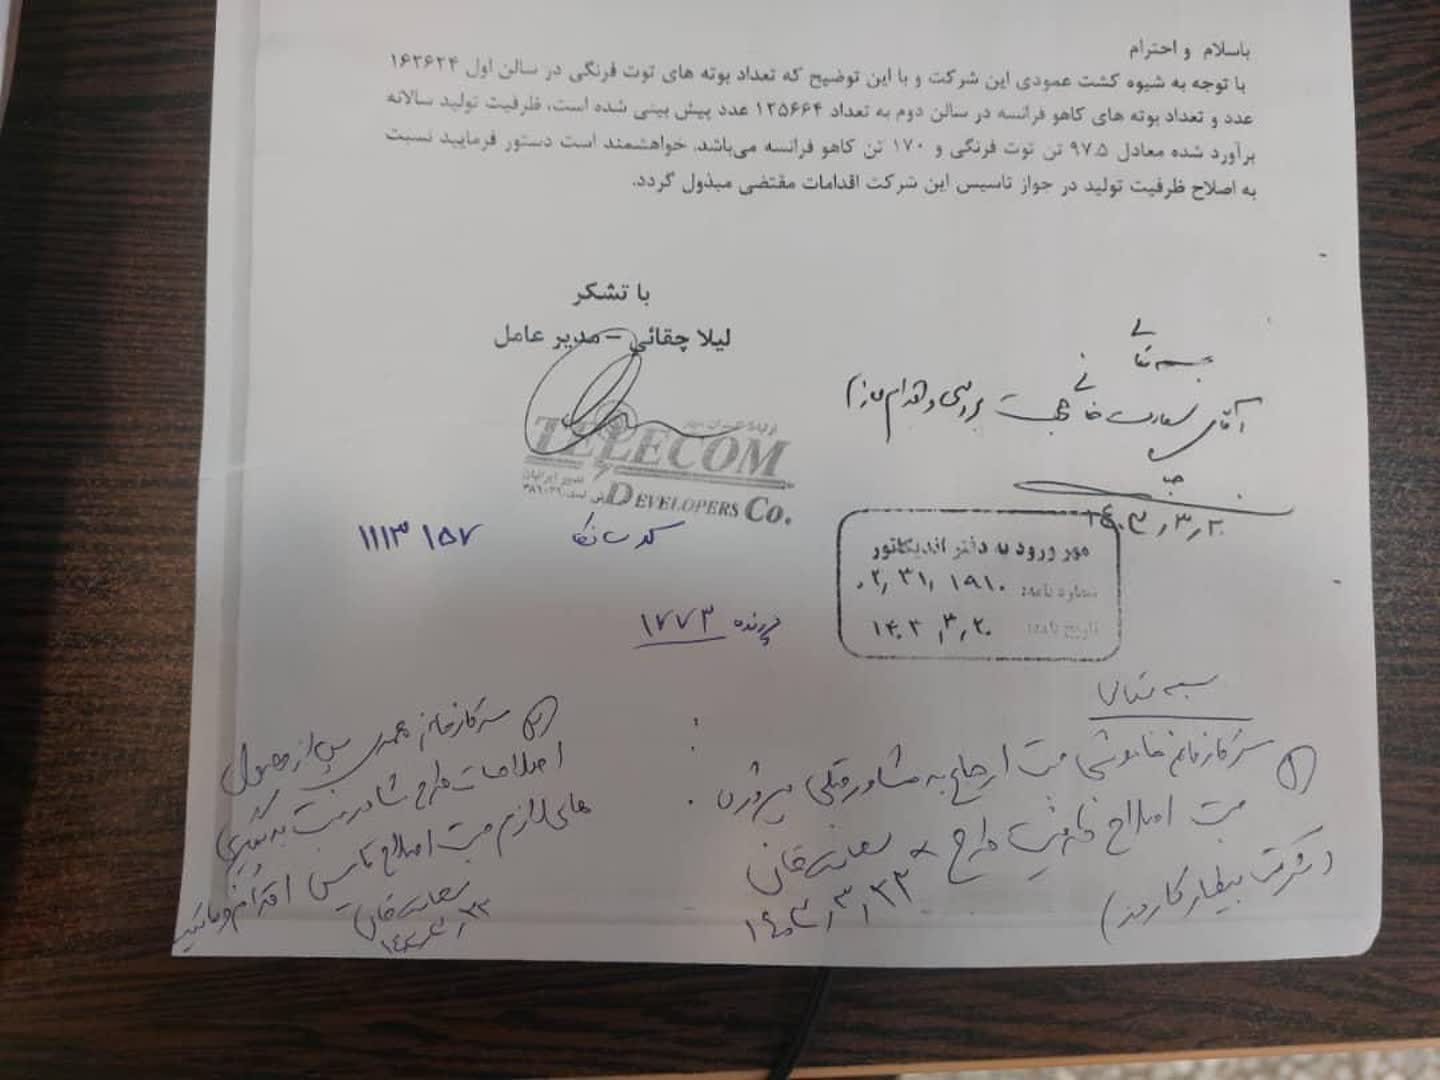 باسلام و احترام
با توجه به شیوه کشت عمودی این شرکت و با این توضیح که تعداد بوته های توت فرنگی در سالن اول ۱۶۲۶۲۴
عدد و تعداد بوته های کاهو فرانسه در سالن دوم به تعداد ۱۲۵۶۶۴ عدد پیش بینی شده است، ظرفیت تولید سالانه
برآورد شده معادل ۹۷.۵ تن توت فرنگی و ۱۷۰ تن کاهو فرانسه می‌باشد. خواهشمند است دستور فرمایید نسبت
به اصلاح ظرفیت تولید در جواز تاسیس این شرکت اقدامات مقتضی مبذول گردد.
با تشکر
لیلا چقائی – مدیر عامل
TELECOM
DEVELOPERS Co.
بسمه تعالی
آقای سعادت خانی جهت بررسی و اقدام لازم
۱۴۰۳٫۳٫۲۰
مهر ورود به دفتر اندیکاتور
شماره نامه: ۰۲٫۳۱٫۱۹۱۰
تاریخ نامه: ۱۴۰۳٫۳٫۲۰
۱۱۱۳۱۵۷
پرونده ۱۷۷۳
بسمه تعالی
۱) سرکار خانم خاموشی جهت ارجاع به مشاور قبلی
جهت اصلاح ظرفیت طرح
(شرکت
سعادت خانی
۱۴۰۳٫۳٫۲۲
۲) سرکار خانم پس از وصول
اصلاحات طرح مشاور نسبت به پیگیری
های لازم جهت اصلاح تاسیس اقدام فرمائید
سعادت خانی